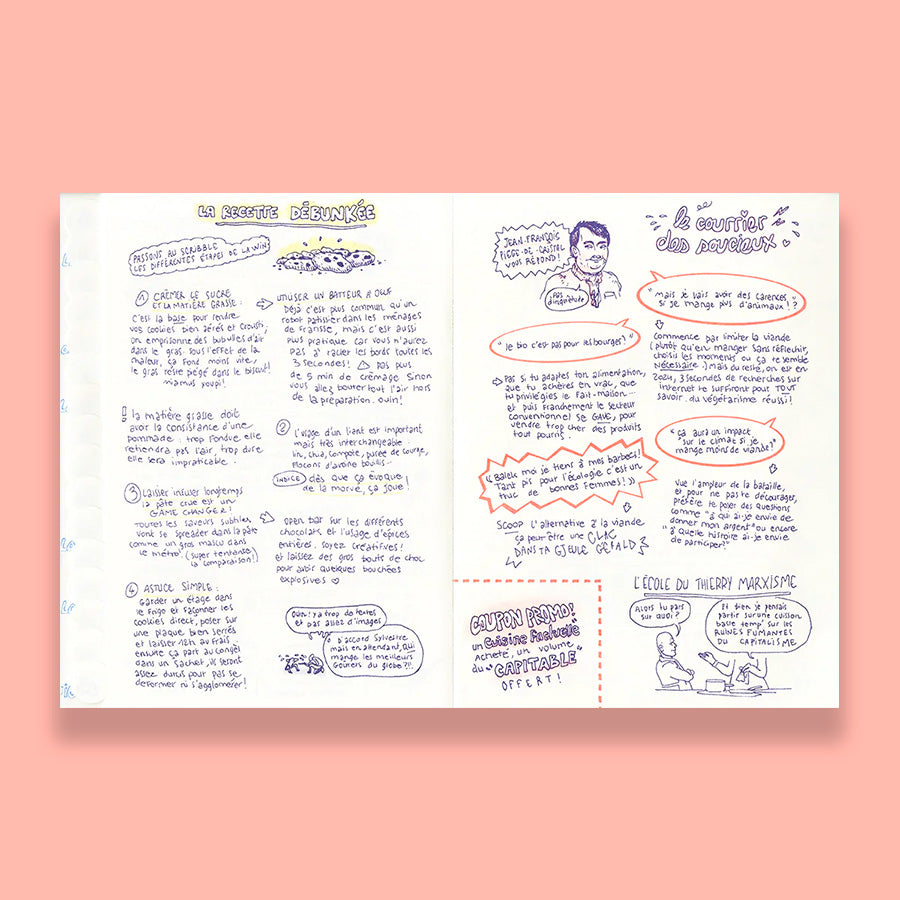 LA RECETTE DÉBUNKÉE
PASSONS AU SCRIBBLE
LES DIFFÉRENTES ÉTAPES DE LA WIN
① CRÉMER LE SUCRE
ET LA MATIÈRE GRASSE :
C'est la base pour rendre
vos cookies bien aérés et crousti,
on emprisonne des bubulles d'air
dans le gras. Sous l'effet de la
chaleur, ça fond moins vite,
le gras reste piégé dans le biscuit
miamus youpi!
! la matière grasse doit
avoir la consistance d'une
pommade : trop fondue, elle
retiendra pas l'air, trop dure
elle sera impraticable.
③ Laisser infuser longtemps
la pâte crue est un
GAME CHANGER!
Toutes les saveurs subtiles
vont se spreader dans la pâte
comme un gros mascu dans
le métro. (super tentante
la comparaison!)
④ ASTUCE SIMPLE :
Garder un étage dans
le frigo et façonner les
cookies direct, poser sur
une plaque bien serrés
et laisser 12h au frais.
ensuite ça part au congel
dans un sachet, ils seront
assez durcis pour pas se
déformer ni s'agglomérer!
UTILISER UN BATTEUR A OEUF
Déjà c'est plus commun qu'un
robot patissier dans les ménages
de Fransse, mais c'est aussi
plus pratique car vous n'aurez
pas à racler les bords toutes les
3 secondes! ⚠ pas plus
de 5 min de crémage sinon
vous allez bourrer tout l'air hors
de la préparation. ouin!
② L'usage d'un liant est important
mais très interchangeable :
lin, chia, compote, purée de courge,
flocons d'avoine bouillis...
INDICE dès que ça évoque
de la morve, ça joue!
open bar sur les différents
chocolats et l'usage d'épices
entières. soyez créatifves!
et laissez des gros bouts de choc
pour avoir quelques bouchées
explosives ♡
Ouin! y'a trop de textes
et pas assez d'images
D'accord Sylvestre
mais en attendant, qui
mange les meilleurs
Goûters du globe?!!
JEAN-FRANÇOIS
PIÈGE-DE-CRISTAL
VOUS RÉPOND!
Pas
d'inquiétude
le courrier
des soucieux
"Mais je vais avoir des carences
si je mange plus d'animaux!?"
Commence par limiter la viande
(plutôt qu'en manger sans réfléchir,
choisis les moments où ça te semble
nécessaire.) Mais du reste, on est en
2024, 3 secondes de recherches sur
internet te suffiront pour TOUT
savoir du végétarisme réussi!
"le bio c'est pas pour les bourges?"
Pas si tu adaptes ton alimentation,
que tu achères en vrac, que
tu privilégies le fait-maison...
et puis franchement le secteur
conventionnel se GAVE, pour
vendre trop cher des produits
tout pourris.
"ça aura un impact
sur le climat si je
mange moins de viande?"
Vue l'ampleur de la bataille,
et pour ne pas te décourager,
préfère te poser des questions
comme "à qui ai-je envie de
donner mon argent" ou encore
"à quelle histoire ai-je envie
de participer?"
«Balek moi je tiens à mes barbecs!
Tant pis pour l'écologie c'est un
truc de bonnes femmes!»
SCOOP L'alternative à la viande
ça peut-être une CLAC
DANS TA GUEULE GÉRALD
COUPON PROMO!
un Cuisine Factuelle
acheté, un volume
du "CAPITABLE"
OFFERT!
L'ÉCOLE DU THIERRY MARXISME
Alors tu pars
sur quoi?
Et bien je pensais
partir sur une cuisson
basse temp' sur les
RUINES FUMANTES
DU CAPITALISME